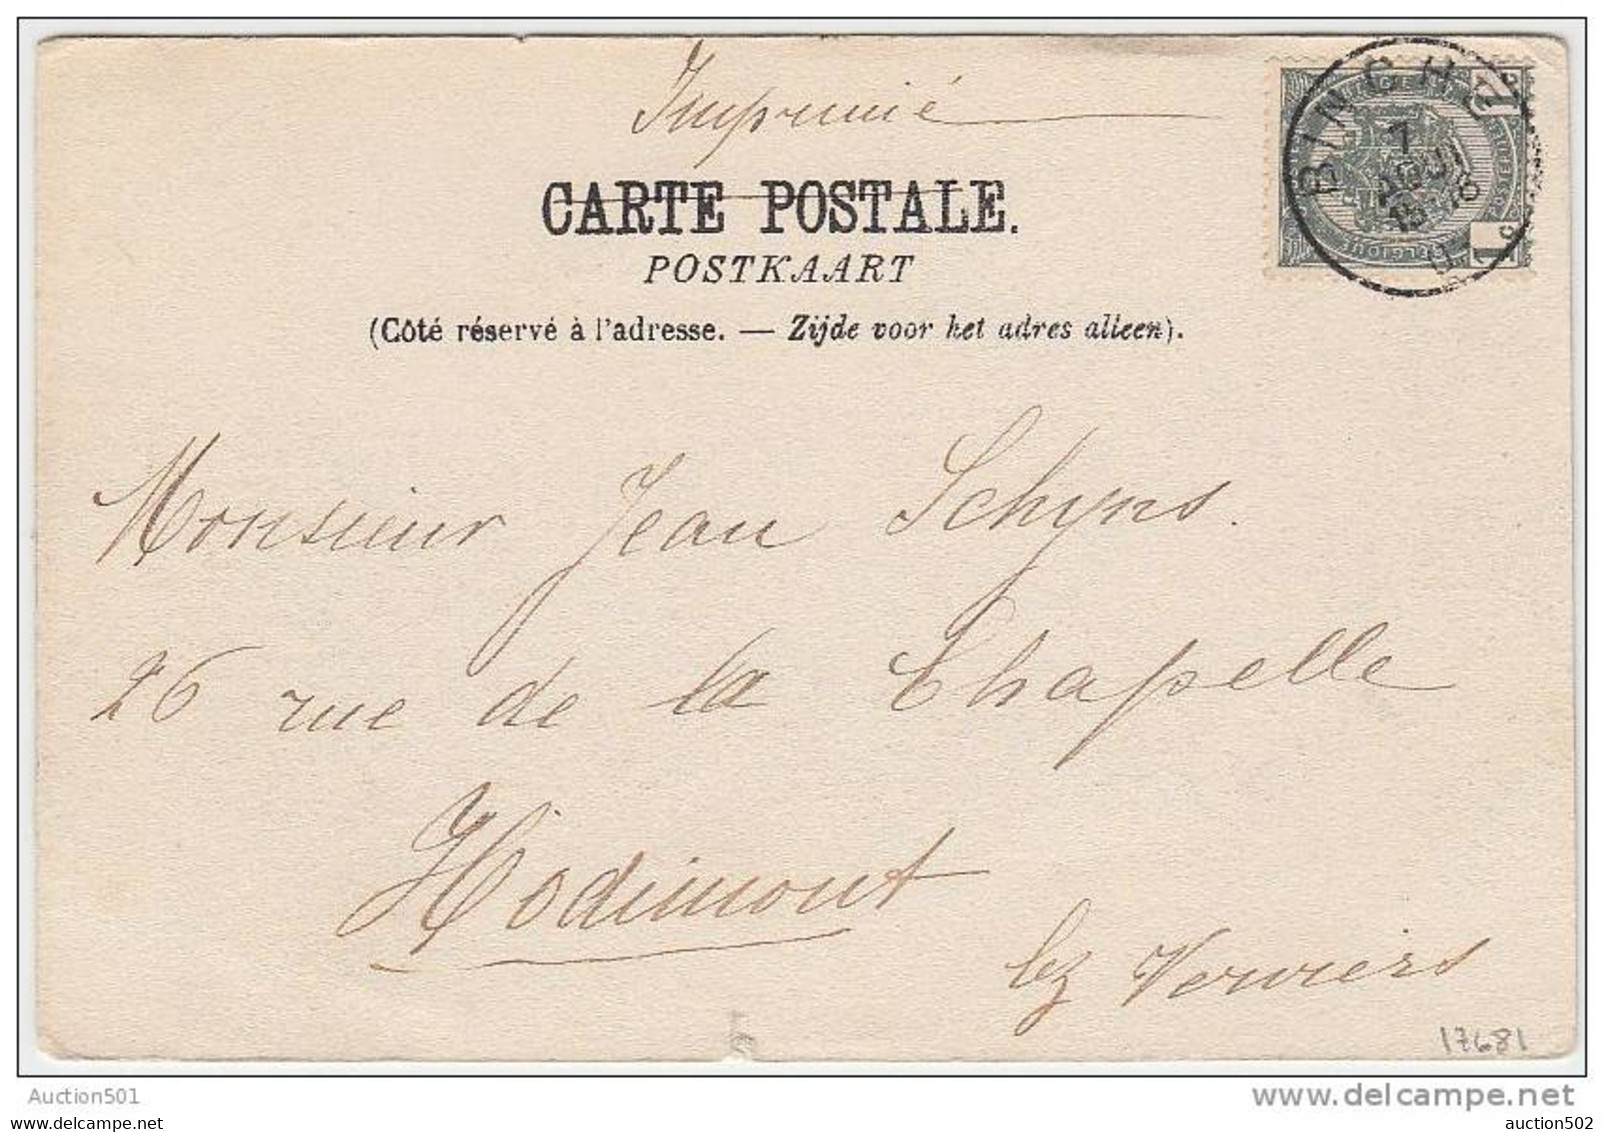 Imprimé
CARTE POSTALE.
POSTKAART
(Côté réservé à l'adresse. — Zijde voor het adres alleen).
BINCHE
7
AOUT
Monsieur Jean Schyns.
26 rue de la Chapelle
Hodimont
lez Verviers
17681
Auction501
delcampe.net
auction502